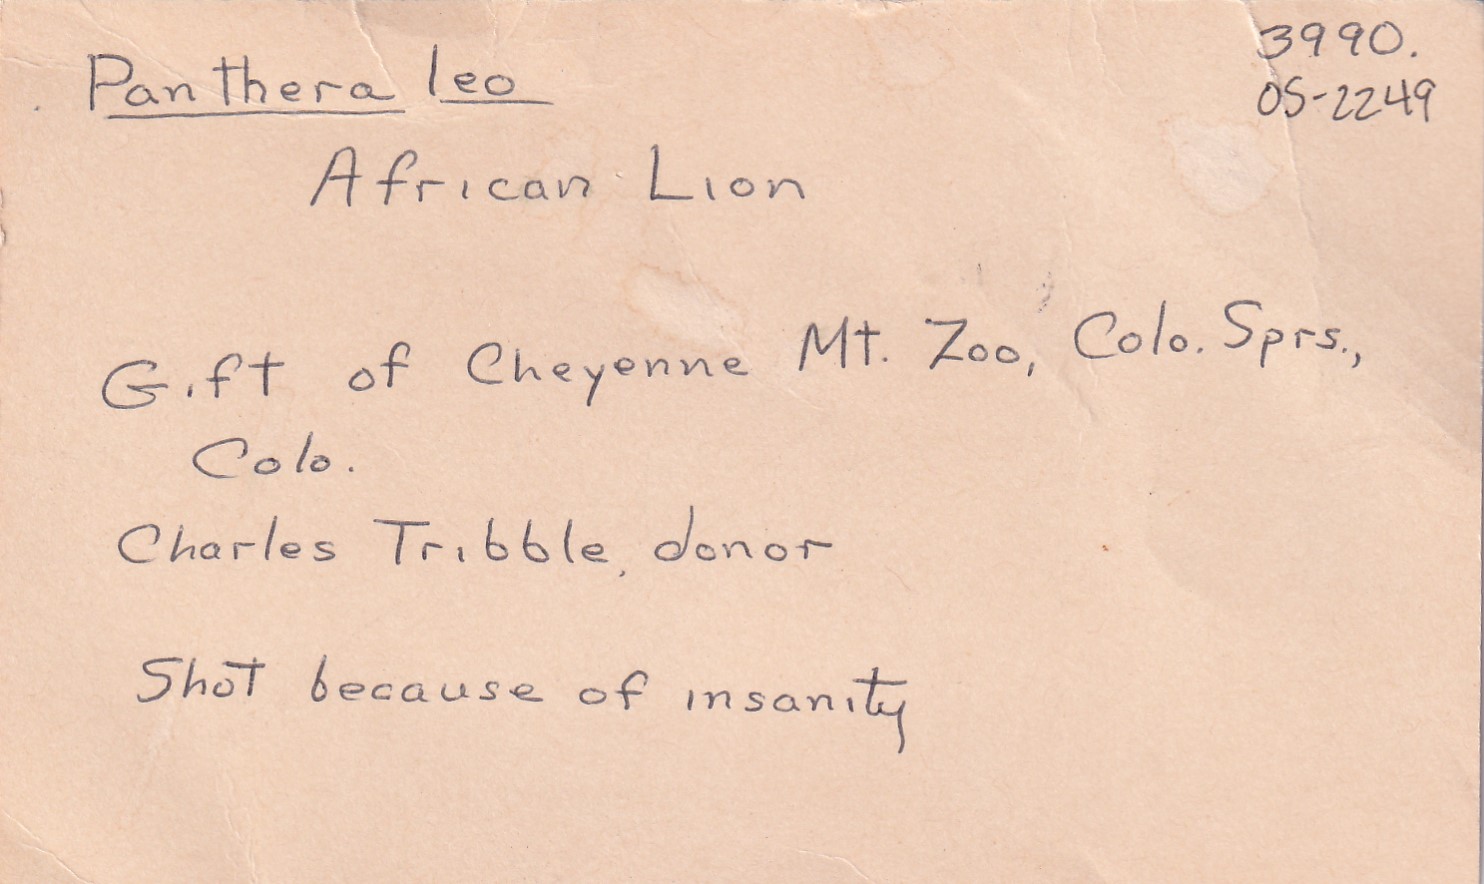 3990.
OS-2249
Panthera leo
African Lion
Gift of Cheyenne Mt. Zoo, Colo. Sprs.,
Colo.
Charles Tribble, donor
Shot because of insanity